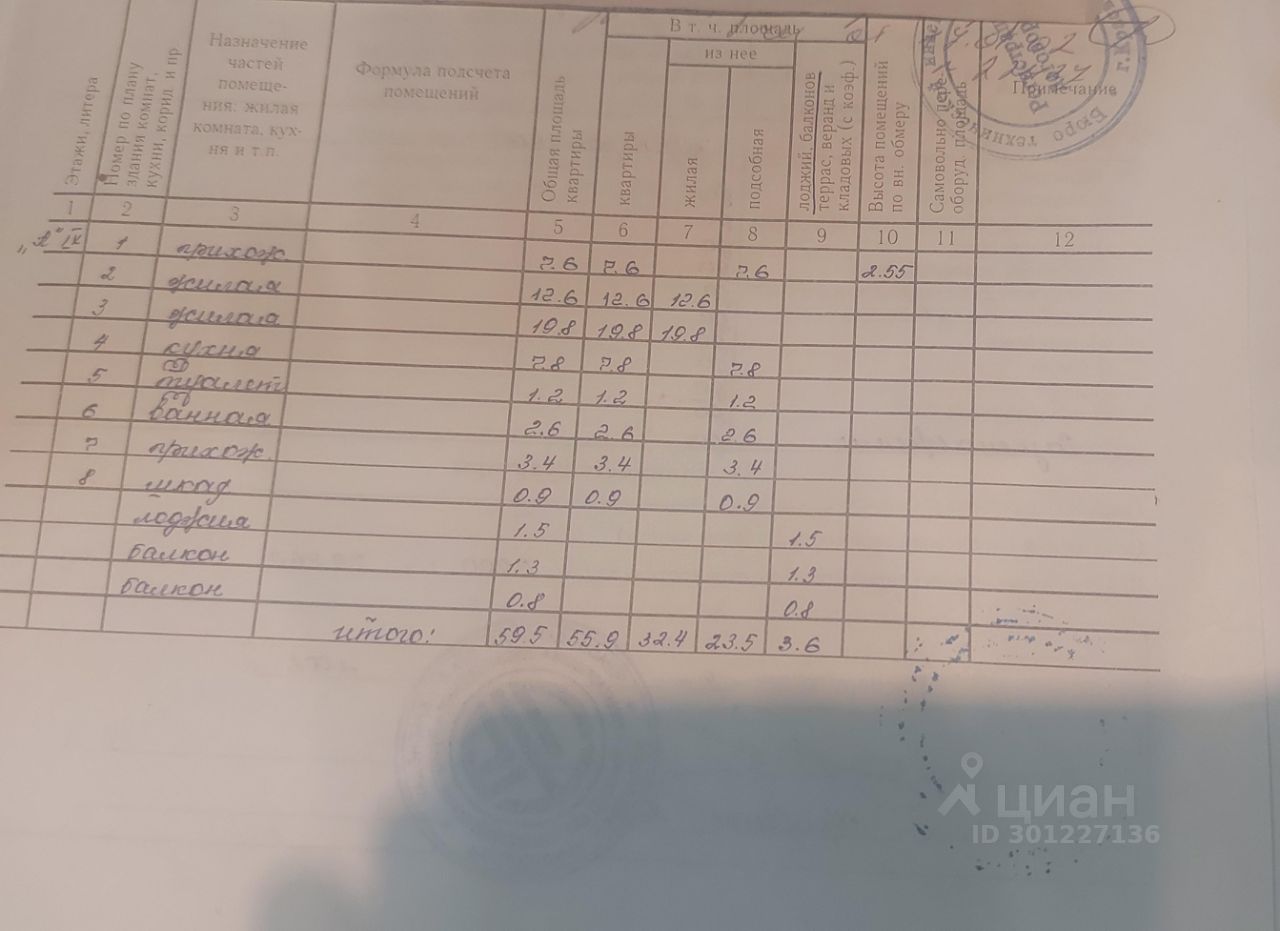 В т. ч. площадь
из нее
Этажи, литера
Номер по плану
здания комнат,
кухни, корид. и пр
Назначение
частей
помеще-
ния: жилая
комната, кух-
ня и т.п.
Формула подсчета
помещений
Общая площадь
квартиры
квартиры
жилая
подсобная
лоджий, балконов
террас, веранд и
кладовых (с коэф.)
Высота помещений
по вн. обмеру
Самовольно пере-
оборуд. площадь
Примечание
1 2 3 4 5 6 7 8 9 10 11 12
„А" IX 1 прихож 7.6 7.6 7.6 2.55
2 жилая 12.6 12.6 12.6
3 жилая 19.8 19.8 19.8
4 кухня 7.8 7.8 7.8
5 туалет 1.2 1.2 1.2
6 ванная 2.6 2.6 2.6
7 прихож 3.4 3.4 3.4
8 шкаф 0.9 0.9 0.9
лоджия 1.5 1.5
балкон 1.3 1.3
балкон 0.8 0.8
итого: 59.5 55.9 32.4 23.5 3.6
Бюро технич
циан
ID 301227136